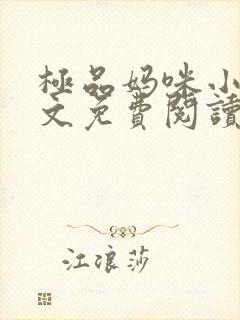 極品妈咪小
文免費閱讀
江浪莎